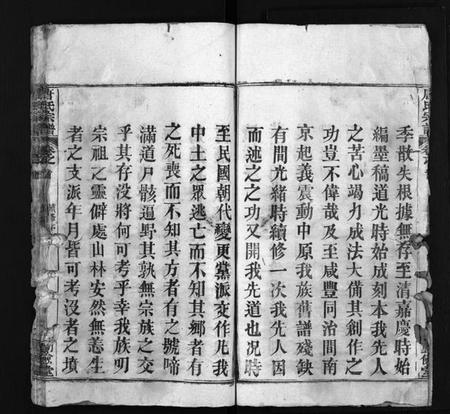 季散失根據無存至清嘉慶時始
編墨稿道光時始成刻本我先人
之苦心竭力成法大備其創作之
功豈不偉哉及至咸豐同治間南
京起義震動中原我族舊譜殘缺
有間光緒時續修一次我先人因
而述之之功又開我先道也况時
至民國朝代變更黨派交作凡我
中土之眾逃亡而不知其鄉者有
之死喪而不知其方者有之號啼
滿道尸骸遍野其孰無宗族之交
乎其存没將何可考乎幸我族叨
宗祖之靈僻處山林安然無恙生
者之支派年月皆可考沒者之墳
唐氏宗譜